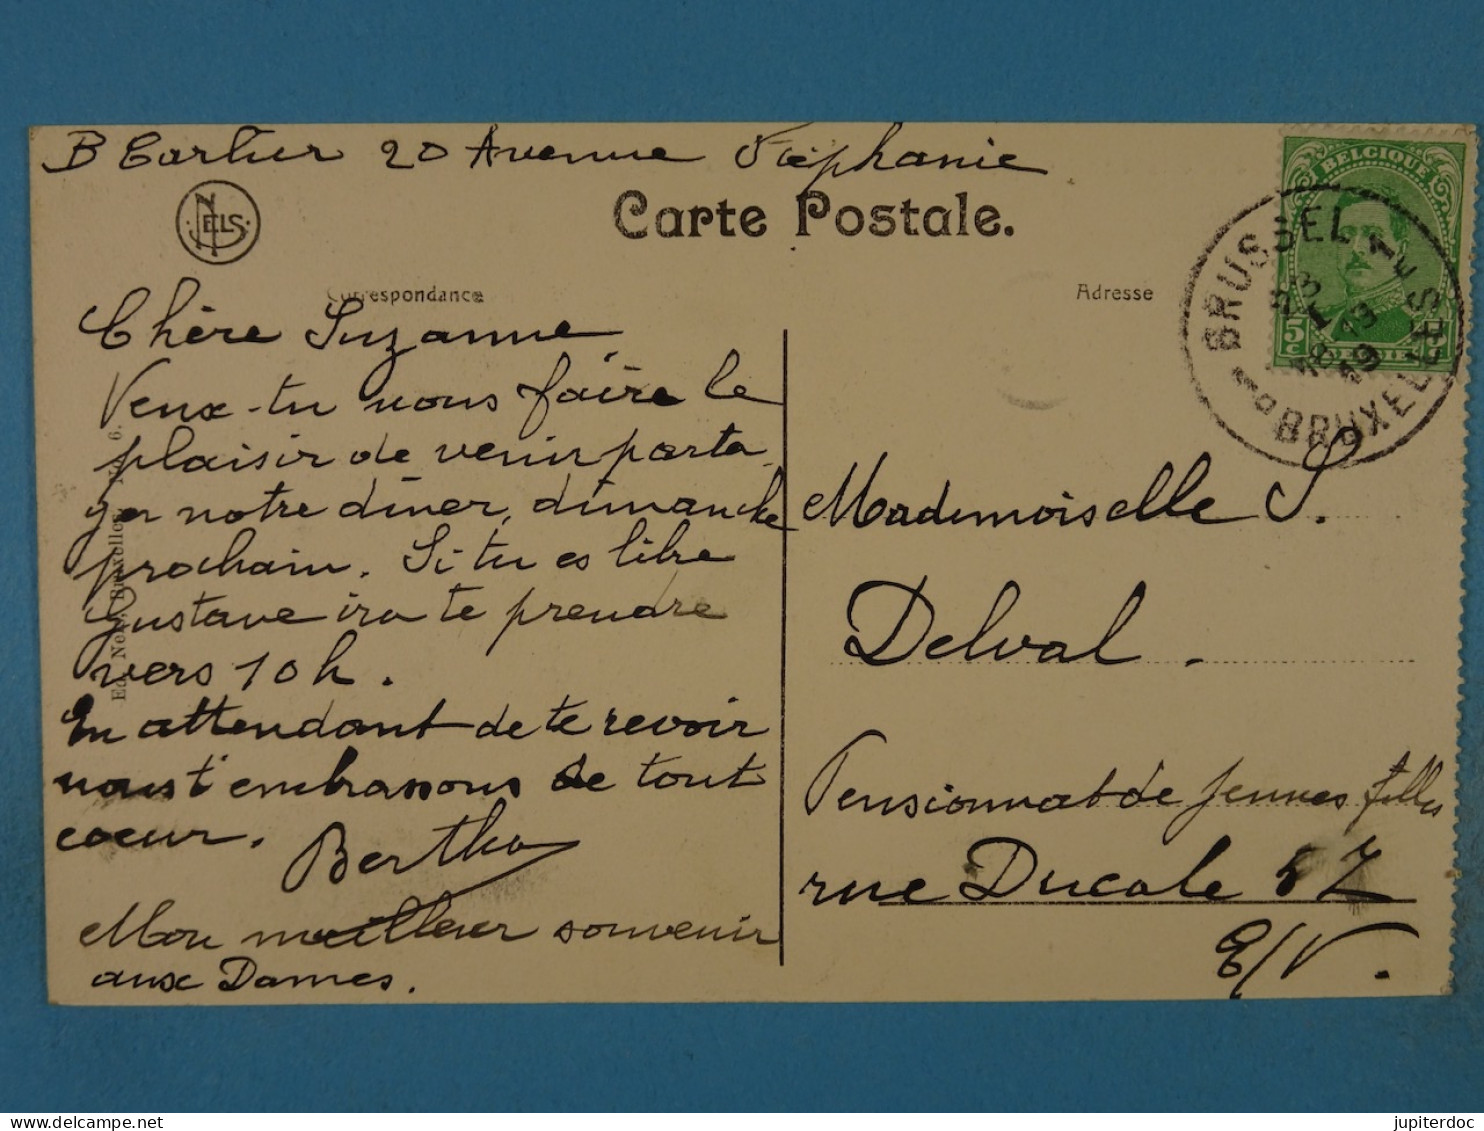 B Cartier 20 Avenue Stéphanie
NELS
Carte Postale.
Correspondance
Adresse
BELGIQUE
5c
BRUSSEL
BRUXELLES
Chère Suzanne
Veux-tu nous faire le
plaisir de venir parta
ger notre dîner, dimanche
prochain. Si tu es libre
Gustave ira te prendre
vers 10h.
En attendant de te revoir
nous t'embrassons de tout
coeur.
Bertha
Mon meilleur souvenir
aux Dames.
Mademoiselle S.
Delval.
Pensionnat de jeunes filles
rue Ducale 57
E/V.
Ed. Nels, Bruxelles
jupiterdoc